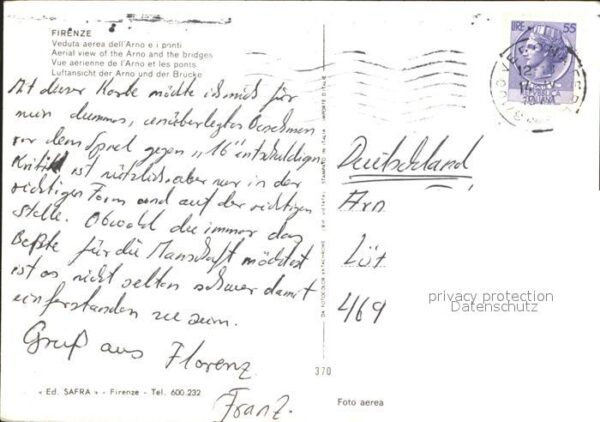 FIRENZE
Veduta aerea dell'Arno e i ponti
Aerial view of the Arno and the bridges
Vue aerienne de l'Arno et les ponts
Luftansicht der Arno und der Brücke
Mit dieser Karte möchte ich mich für
mein dummes, unüberlegtes Benehmen
vor dem Spiel gegen "16" entschuldigen
Kritik ist nützlich, aber nur in der
richtigen Form und auf der richtigen
Stelle. Obwohl du immer das
Beßte für die Manschaft möchtest
ist es nicht selten schwer damit
einferstanden zu sein.
Gruß aus Florenz
Franz.
« Ed. SAFRA » - Firenze - Tel. 600.232
370
LIRE 55
12
Deutschland
Arn
Lüt
469
privacy protection
Datenschutz
Foto aerea